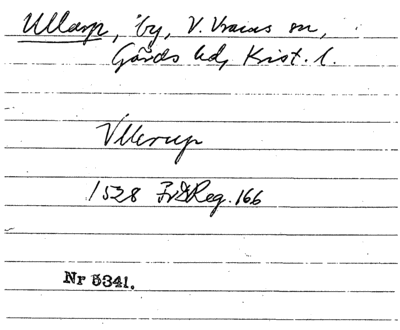 Ullarp, by, V. Vrams sn,
Gärds hd, Krist. l.
Vllerup
1528 Fr I Reg. 166
Nr 5341.